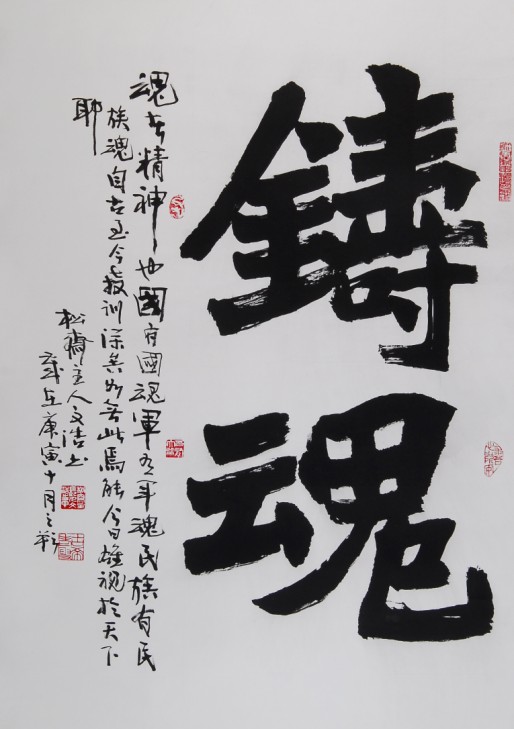 鑄魂
魂者精神也國有國魂軍有軍魂民族有民
族魂自古至今教訓深矣如無此焉能今日雄視於天下
耶
松齋主人文浩书
歲在庚寅十月之